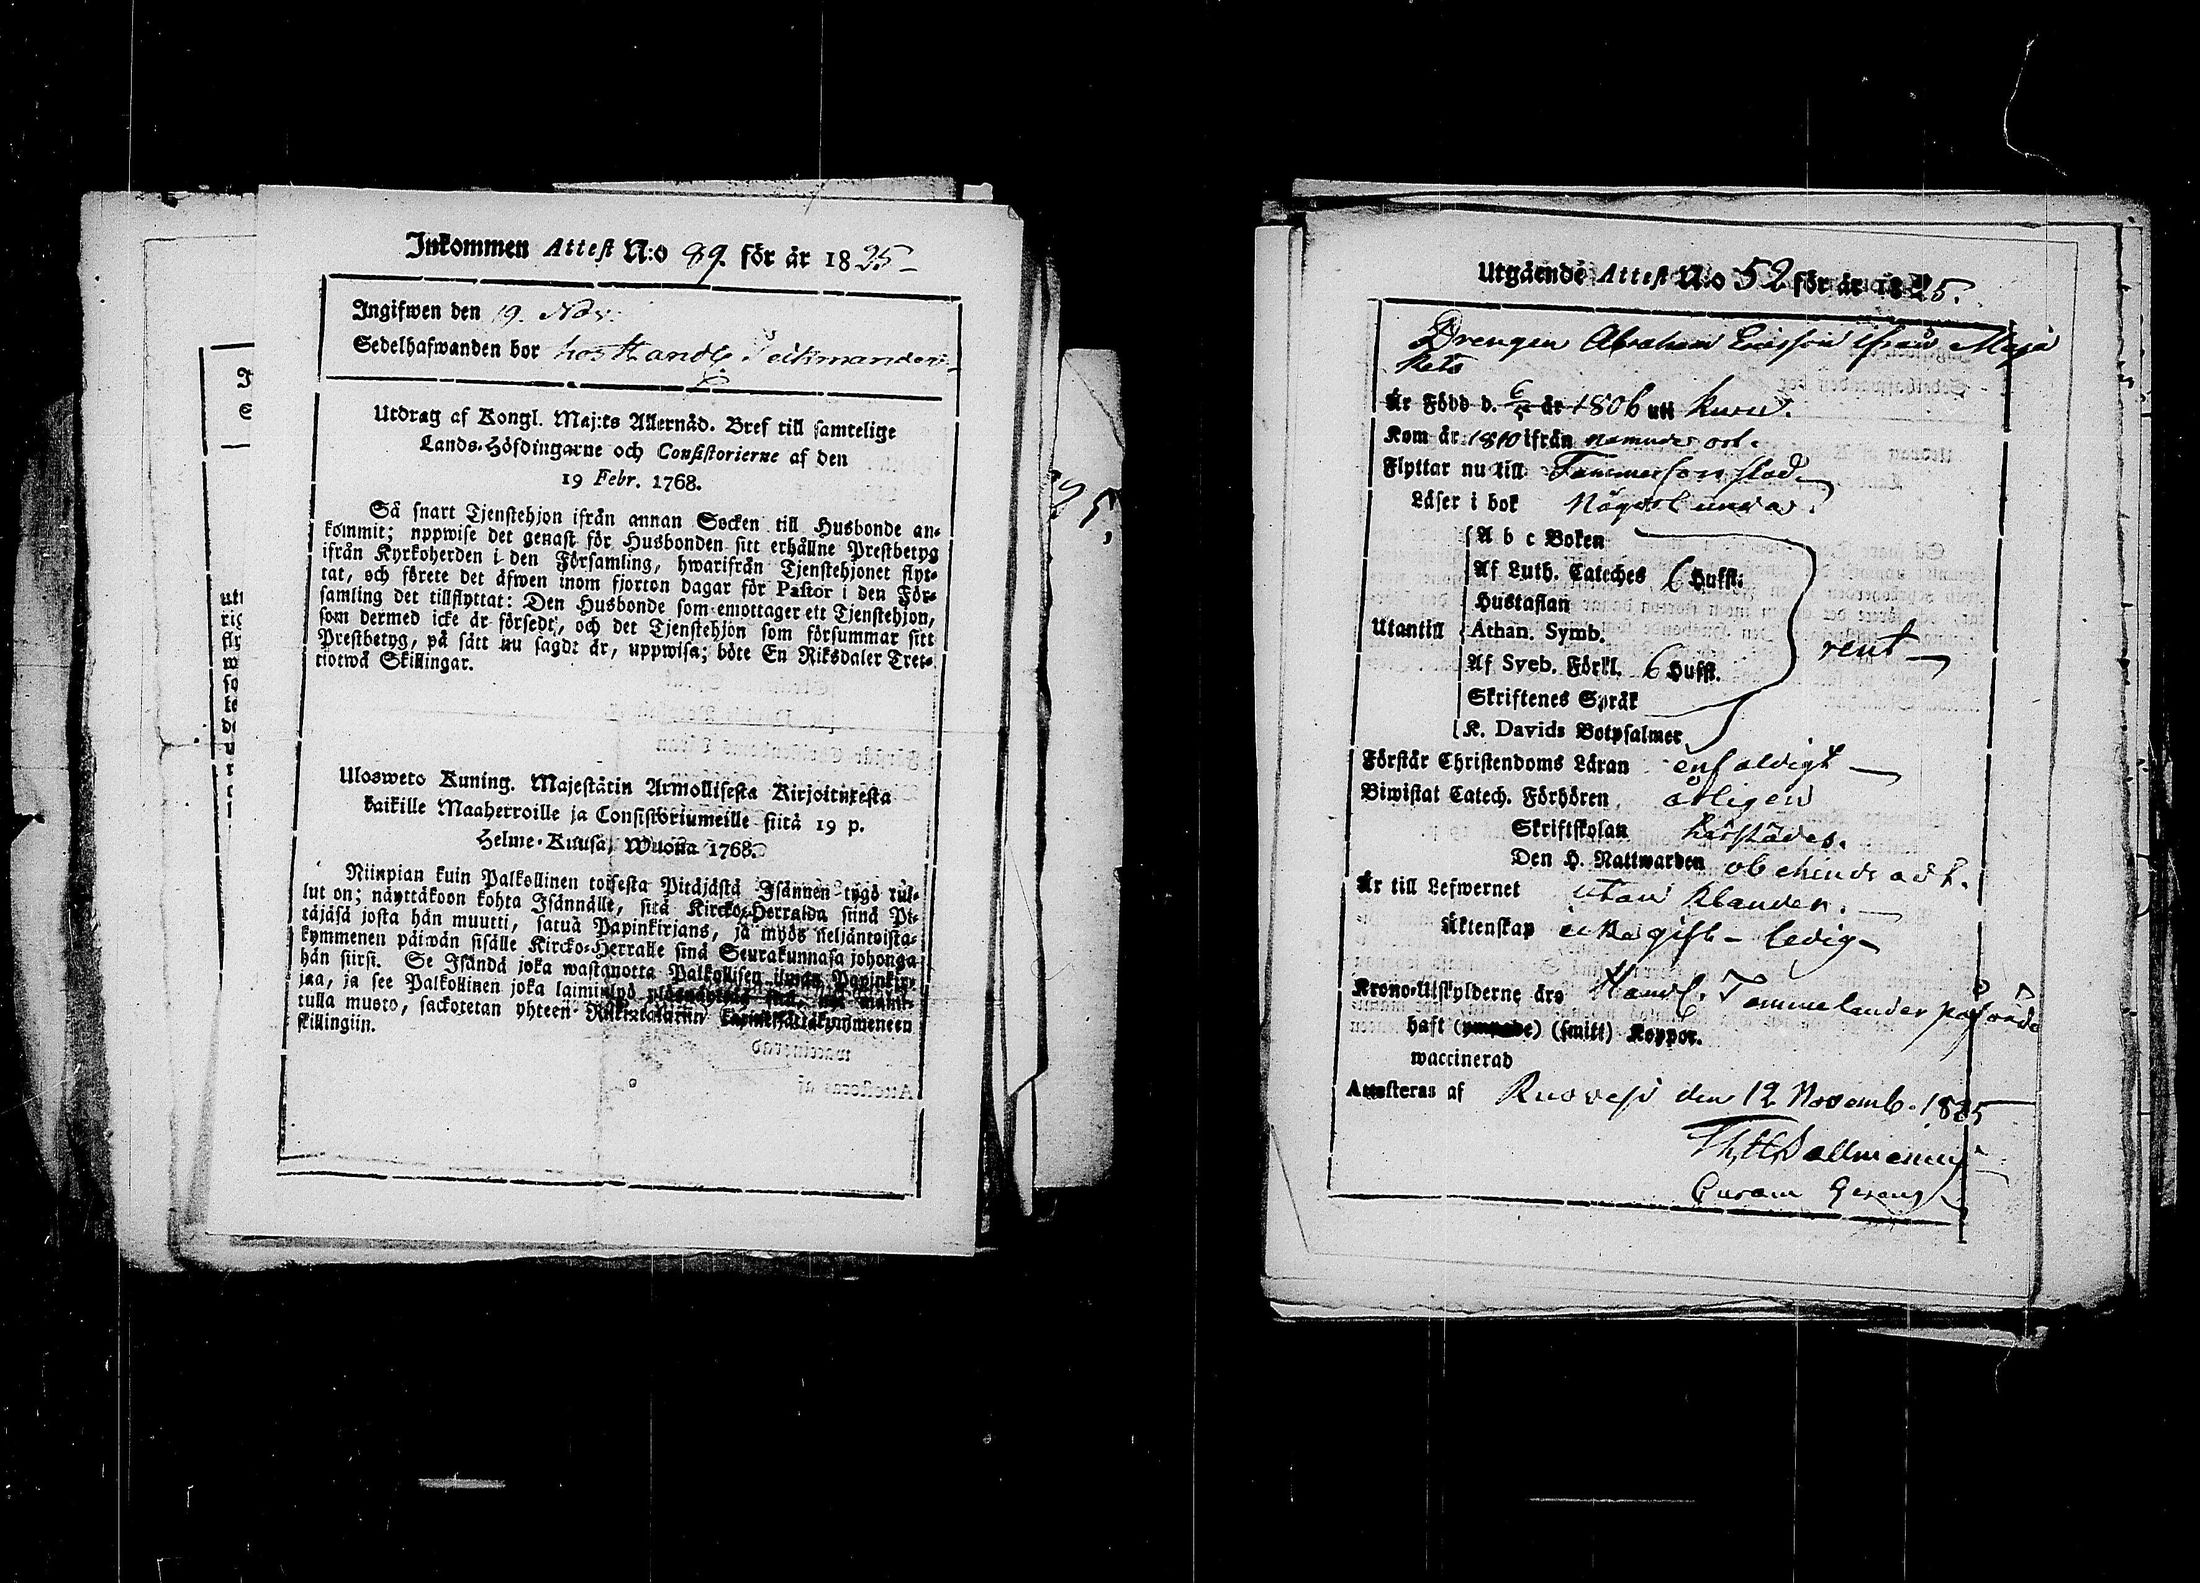 Inkommen Attest N:o 89. för år 1825
Ingifwen den 19. Nov.
Sedelhafwanden bor hos Handl.
Utdrag af Kongl. Maj:ts Allernåd. Bref till samtelige
Lands-Höfdingarne och Consistorierne af den
19 Febr. 1768.
Så snart Tjenstehjon ifrån annan Socken till Husbonde an-
kommit; uppwise det genast för Husbonden sitt erhållne Prestbetyg
ifrån Kyrkoherden i den Församling, hwarifrån Tjenstehjonet flyt-
tat, och förete det äfwen inom fjorton dagar för Pastor i den För-
samling det tillflyttat: Den Husbonde som emottager ett Tjenstehjon,
som dermed icke är försedt, och det Tjenstehjon som försummar sitt
Prestbetyg, på sätt nu sagdt är, uppwisa; böte En Riksdaler Tret-
tiotwå Skillingar.
Ulosweto Kuning. Majestätin Armollisesta Kirjoituxesta
kaikille Maaherroille ja Consistoriumeille siitä 19 p.
Helme-Kuusa, Wuonna 1768.
Niinpian kuin Palkollinen toisesta Pitäjästä Isännen tygö tul-
lut on; näyttäkoon kohta Isännälle, sitä Kircko-Herralda siinä Pi-
täjäsä josta hän muutti, saatua Papinkirjans, ja myös neljäntoista-
kymmenen päiwän sisälle Kircko-Herralle siinä Seurakunnasa johonga
hän siirsi. Se Isändä joka wastanotta Palkollisen ilman Papinkir-
jaa, ja see Palkollinen joka laiminlyö
tulla muoto, sackotetan yhteen Riikintalariin
skillingiin.
Utgående Attest N:o 52 för år 1825.
Drengen Abraham Ericsson ifrån Maja
Är Född d. år 1806 uti
Kom år 1810 ifrån namnde ort.
Flyttar nu till Tammerfors stad
Läser i bok Någorlunda.
A b c Boken
Af Luth. Cateches 6 Hufst.
Hustaflan
Utantill Athan. Symb. rent
Af Sveb. Förkl. 6 Hufst.
Skriftenes Språk
K. Davids Botpsalmer
Förstår Christendoms Läran enfaldigt
Biwistat Catech. Förhören årligen
Skriftskolan härstädes.
Den H. Nattwarden obehindradt.
Är till Lefwernet utan klander.
Äktenskap icke gift - ledig
Krono-Utskylderne äro Handl. Tammelander påförde
haft (ympade) (smitt) Koppor.
waccinerad
Attesteras af Ruovesi den 12 Novemb. 1825
Curam Gerens